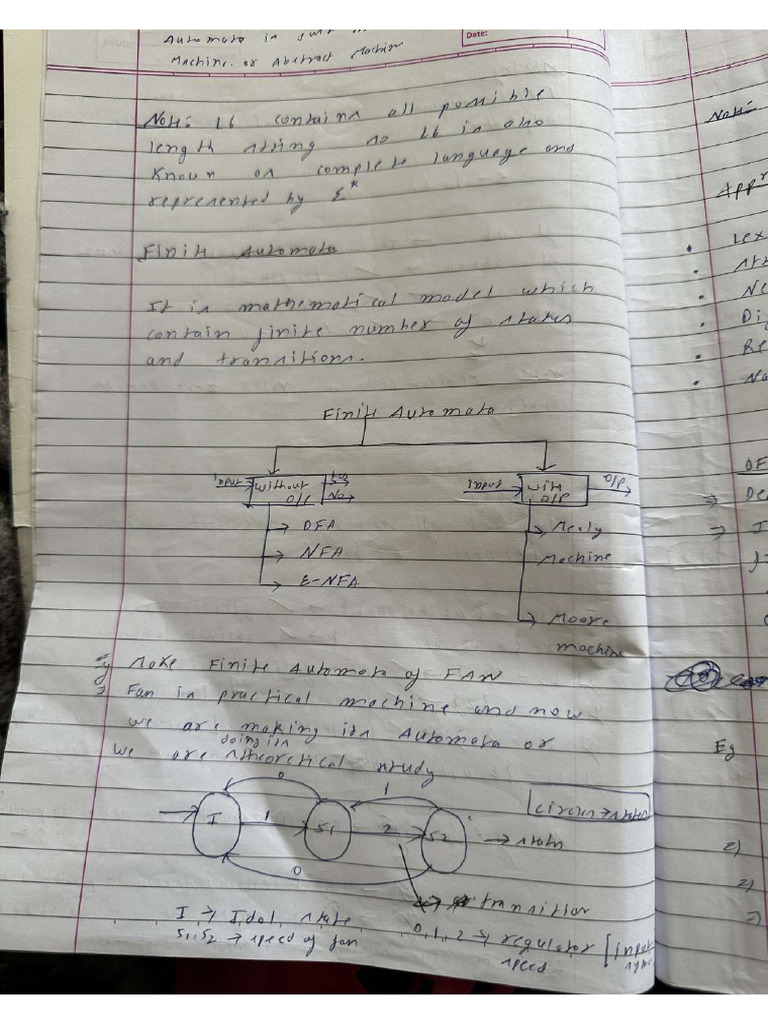 Automata is
Date:
Machine or Abstract Machin
Note: L6 contains all possible
length string so L6 is also
known as complete language and
represented by Σ*
Finite Automata
It is mathematical model which
contain finite number of states
and transitions.
Finite Automata
Input
without
O/P
Yes
No
Input
with
O/P
O/P
DFA
NFA
ε-NFA
Mealy
Machine
Moore
machine
Eg Make Finite Automata of FAN
Fan is practical machine and now
we are making its Automata or
doing its
we are theoretical study
0
1
I
1
S1
2
S2
0
circus → states
→ state
→ transition
I → Idol state
S1, S2 → speed of fan
0, 1, 2 → regulator [input
speed
Note:
App
Lex
Ne
Di
Re
Na
DF
⇒ De
⇒ I
Eg
2)
2)